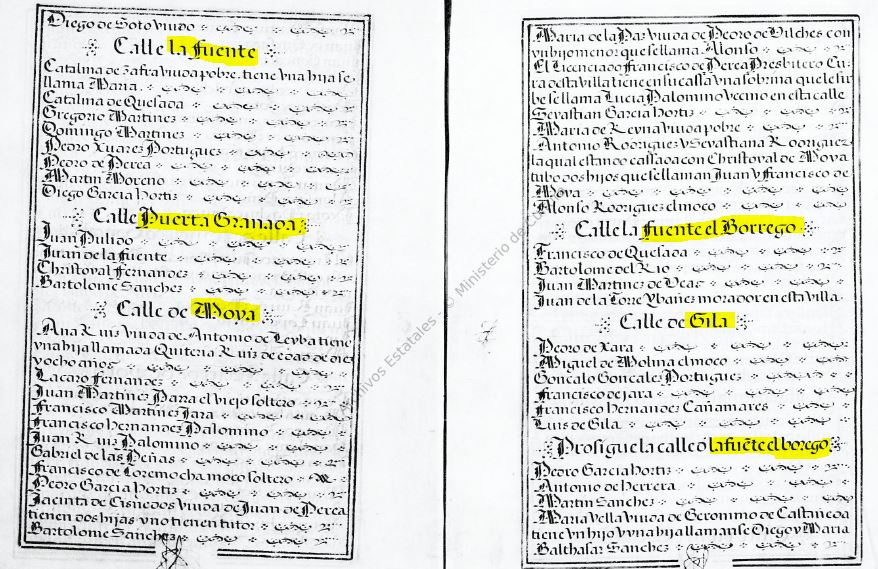 Diego de Soto viudo
Calle la fuente
Catalina de zafra viuda pobre. tiene vna hija se
llama Maria.
Catalina de Quesada
Gregorio Martinez
Domingo Martinez
Pedro Xuarez Portugues
Pedro de Perea
Martin Moreno
Diego Garcia hortiz
Calle Puerta Granada
Juan Pulido
Juan de la fuente
Christoval Fernandez
Bartolome Sanchez
Calle de Moya
Ana Ruiz viuda de Antonio de Leyba tiene
vna hija llamada Quiteria Ruiz de edad de diez
y ocho años
Lacaro Fernandez
Juan Martinez Parra el viejo soltero
Francisco Martinez Jara
Francisco hernandez Palomino
Juan Ruiz Palomino
Gabriel de las Peñas
Francisco de Loremocha moco soltero
Pedro Garcia hortiz
Jacinta de Cisnedos viuda de Juan de Perea
tienen dos hijas y no tienen tutor
Bartolome Sanchez
Maria de la Paz viuda de Pedro de Vilches con
vn hijo menor que se llama Alonso
El Licenciado Francisco de Perea Presbitero Cu
ra desta villa tiene en su cassa vna sobrina que le sir
be se llama Lucia Palomino vecino en esta calle
Sevastian Garcia hortiz
Maria de Reyna viuda pobre
Antonio Rodriguez y Sevastiana Rodriguez
la qual estando cassada con Christoval de Moya
tubo dos hijos que se llaman Juan y Francisco de
Moya
Alonso Rodriguez el moco
Calle la fuente el Borrego
Francisco de Quesada
Bartolome del Rio
Juan Martinez de Beas
Juan de la Torre Ybañez morador en esta villa
Calle de Gila
Pedro de Xara
Miguel de Molina el moco
Goncalo Goncales Portuguez
Francisco de jara
Francisco hernandez Cañamares
Luis de Gila
Prosigue la calle d la fuēte el borego
Pedro Garcia hortiz
Antonio de herrera
Martin Sanchez
Maria Vella viuda de Geronimo de Castañeda
tiene vn hijo y vna hija llamanse Diego y Maria
Balthasar Sanchez
Archivos Estatales - © Ministerio de Cu